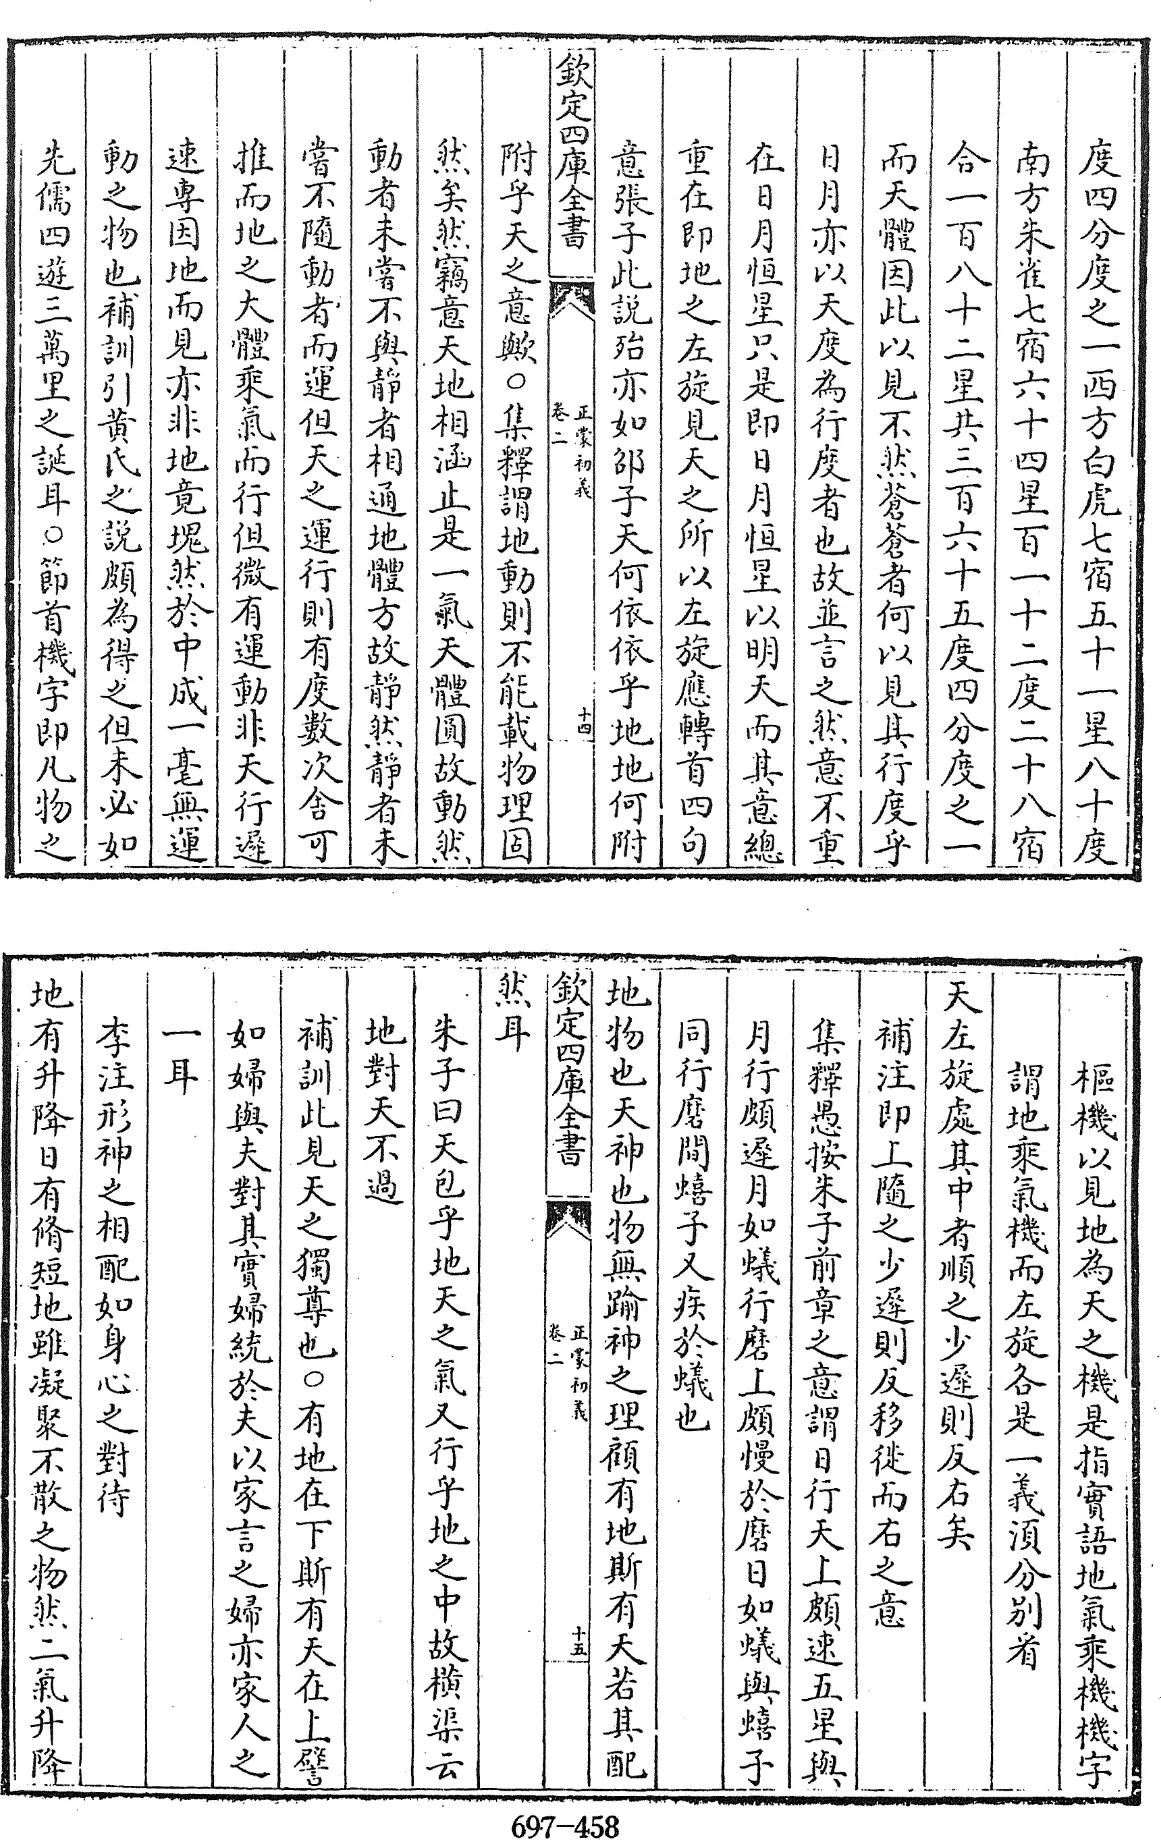 度四分度之一西方白虎七宿五十一星八十度
南方朱雀七宿六十四星百一十二度二十八宿
合一百八十二星共三百六十五度四分度之一
而天體因此以見不然蒼蒼者何以見其行度乎
日月亦以天度為行度者也故並言之然意不重
在日月恒星只是即日月恒星以明天而其意總
重在即地之左旋見天之所以左旋應轉首四句
意張子此説殆亦如邵子天何依依乎地地何附
欽定四庫全書
正蒙初義
卷二
十四
附乎天之意歟○集釋謂地動則不能載物理固
然矣然竊意天地相涵止是一氣天體圓故動然
動者未嘗不與靜者相通地體方故靜然靜者未
嘗不隨動者而運但天之運行則有度數次舍可
推而地之大體乘氣而行但微有運動非天行遲
速專因地而見亦非地竟塊然於中成一毫無運
動之物也補訓引黄氏之説頗為得之但未必如
先儒四遊三萬里之誕耳○節首機字即凡物之
樞機以見地為天之機是指實語地氣乘機機字
謂地乘氣機而左旋各是一義須分别看
天左旋處其中者順之少遲則反右矣
補注即上隨之少遲則反移徙而右之意
集釋愚按朱子前章之意謂日行天上頗速五星與
月行頗遲月如蟻行磨上頗慢於磨日如蟻與蟢子
同行磨間蟢子又疾於蟻也
地物也天神也物無踰神之理顧有地斯有天若其配
欽定四庫全書
正蒙初義
卷二
十五
然耳
朱子曰天包乎地天之氣又行乎地之中故橫渠云
地對天不過
補訓此見天之獨尊也○有地在下斯有天在上譬
如婦與夫對其實婦統於夫以家言之婦亦家人之
一耳
李注形神之相配如身心之對待
地有升降日有脩短地雖凝聚不散之物然二氣升降
697-458